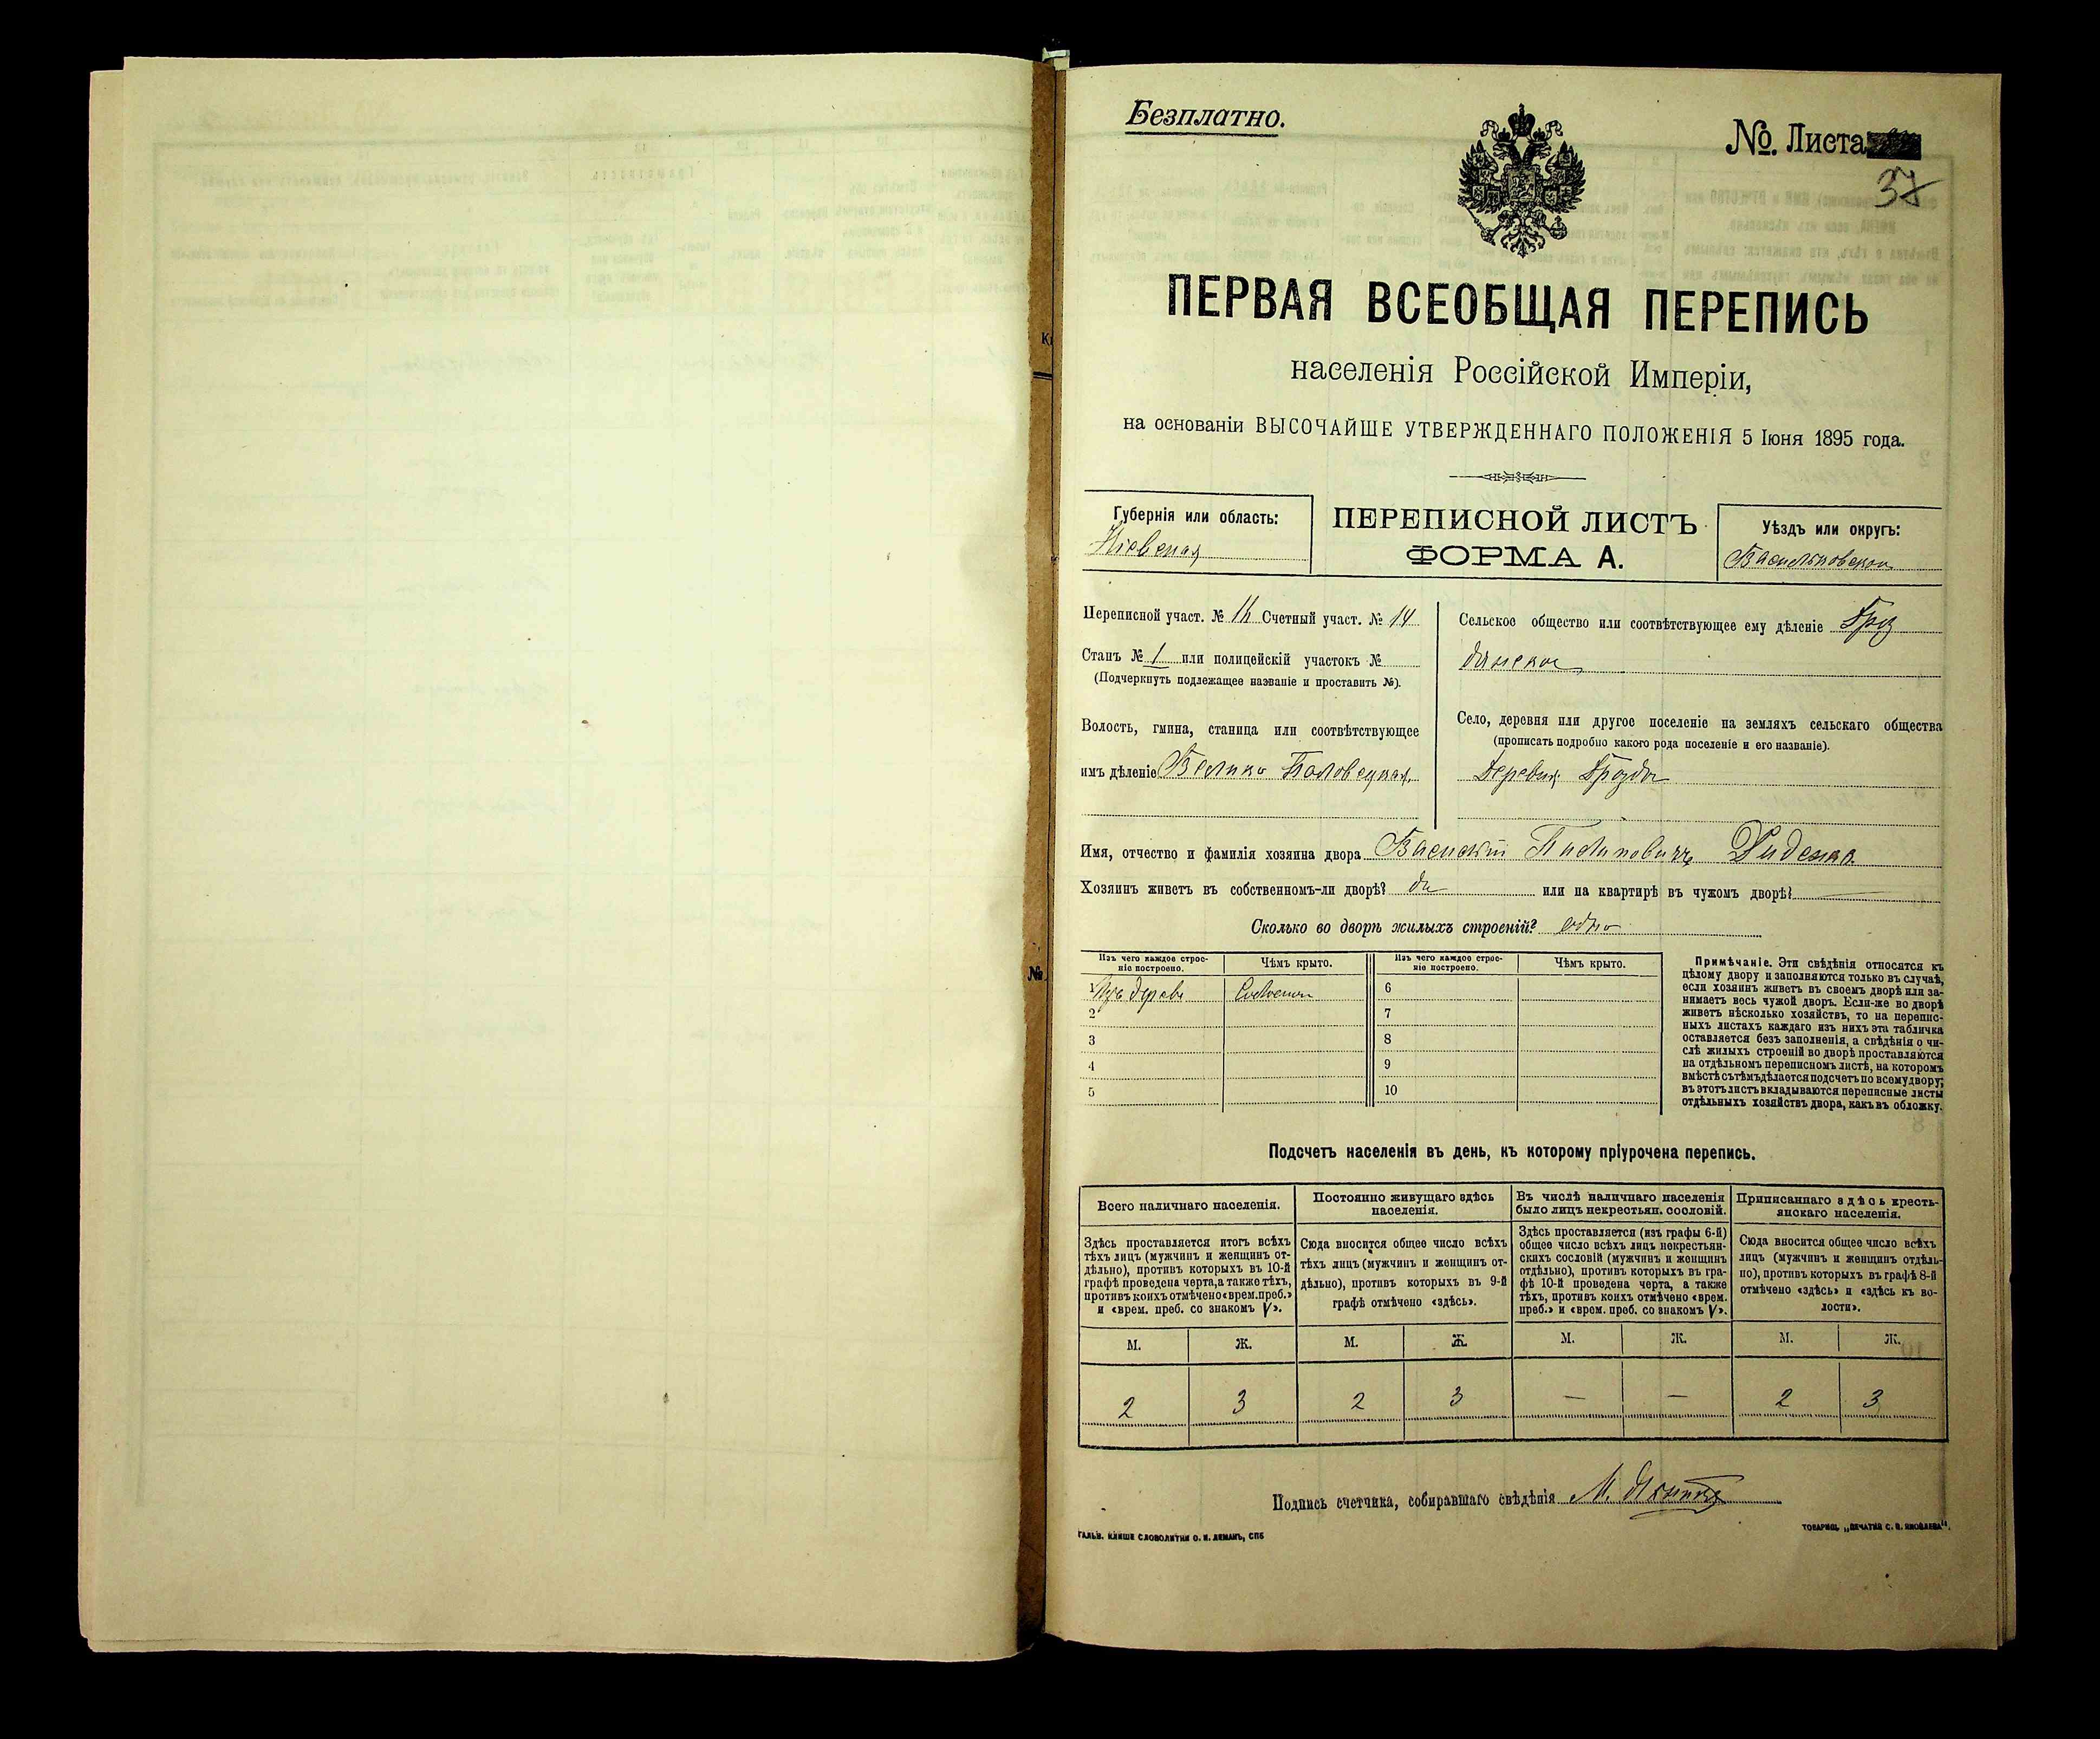 Безплатно.
№. Листа
37
ПЕРВАЯ ВСЕОБЩАЯ ПЕРЕПИСЬ
населенія Россійской Имперіи,
на основаніи ВЫСОЧАЙШЕ УТВЕРЖДЕННАГО ПОЛОЖЕНІЯ 5 Іюня 1895 года.
Губернія или область:
Кіевская
ПЕРЕПИСНОЙ ЛИСТЪ
ФОРМА А.
Уѣздъ или округъ:
Васильковскій
Переписной участ. № Счетный участ. № 14
Станъ № 1 или полицейскій участокъ №
(Подчеркнуть подлежащее названіе и проставить №).
Волость, гмина, станица или соотвѣтствующее
имъ дѣленіе Велико Половецкая
Сельское общество или соотвѣтствующее ему дѣленіе Гроз
данское
Село, деревня или другое поселеніе на земляхъ сельскаго общества
(прописать подробно какого рода поселеніе и его названіе).
Деревня
Имя, отчество и фамилія хозяина двора Василій
Хозяинъ живетъ въ собственномъ-ли дворѣ? да или на квартирѣ въ чужомъ дворѣ?
Сколько во дворѣ жилыхъ строеній? одно
Изъ чего каждое строе-
ніе построено.
Чѣмъ крыто.
Изъ чего каждое строе-
ніе построено.
Чѣмъ крыто.
1 Изъ дерева Соломою 6
2 7
3 8
4 9
5 10
Примѣчаніе. Эти свѣдѣнія относятся къ
цѣлому двору и заполняются только въ случаѣ,
если хозяинъ живетъ въ своемъ дворѣ или за-
нимаетъ весь чужой дворъ. Если-же во дворѣ
живетъ нѣсколько хозяйствъ, то на перепис-
ныхъ листахъ каждаго изъ нихъ эта табличка
оставляется безъ заполненія, а свѣдѣнія о чи-
слѣ жилыхъ строеній во дворѣ проставляются
на отдѣльномъ переписномъ листѣ, на которомъ
вмѣстѣ съ тѣмъ дѣлается подсчетъ по всему двору;
въ этотъ листъ вкладываются переписные листы
отдѣльныхъ хозяйствъ двора, какъ въ обложку.
Подсчетъ населенія въ день, къ которому пріурочена перепись.
Всего наличнаго населенія.
Здѣсь проставляется итогъ всѣхъ
тѣхъ лицъ (мужчинъ и женщинъ от-
дѣльно), противъ которыхъ въ 10-й
графѣ проведена черта, а также тѣхъ,
противъ коихъ отмѣчено «врем. преб.»
и «врем. преб. со знакомъ V».
Постоянно живущаго здѣсь
населенія.
Сюда вносится общее число всѣхъ
тѣхъ лицъ (мужчинъ и женщинъ от-
дѣльно), противъ которыхъ въ 9-й
графѣ отмѣчено «здѣсь».
Въ числѣ наличнаго населенія
было лицъ некрестьян. сословій.
Здѣсь проставляется (изъ графы 6-й)
общее число всѣхъ лицъ некрестьян-
скихъ сословій (мужчинъ и женщинъ
отдѣльно), противъ которыхъ въ гра-
фѣ 10-й проведена черта, а также
тѣхъ, противъ коихъ отмѣчено «врем.
преб.» и «врем. преб. со знакомъ V».
Приписаннаго здѣсь кресть-
янскаго населенія.
Сюда вносится общее число всѣхъ
лицъ (мужчинъ и женщинъ отдѣль-
но), противъ которыхъ въ графѣ 8-й
отмѣчено «здѣсь» и «здѣсь къ во-
лости».
М. Ж. М. Ж. М. Ж. М. Ж.
2 3 2 3 — — 2 3
Подпись счетчика, собиравшаго свѣдѣнія
ГАЛЬВ. КЛИШЕ СЛОВОЛИТНИ О. И. ЛЕМАНЪ, СПБ
ТОВАРИЩ. „ПЕЧАТНЯ С. П. ЯКОВЛЕВА".